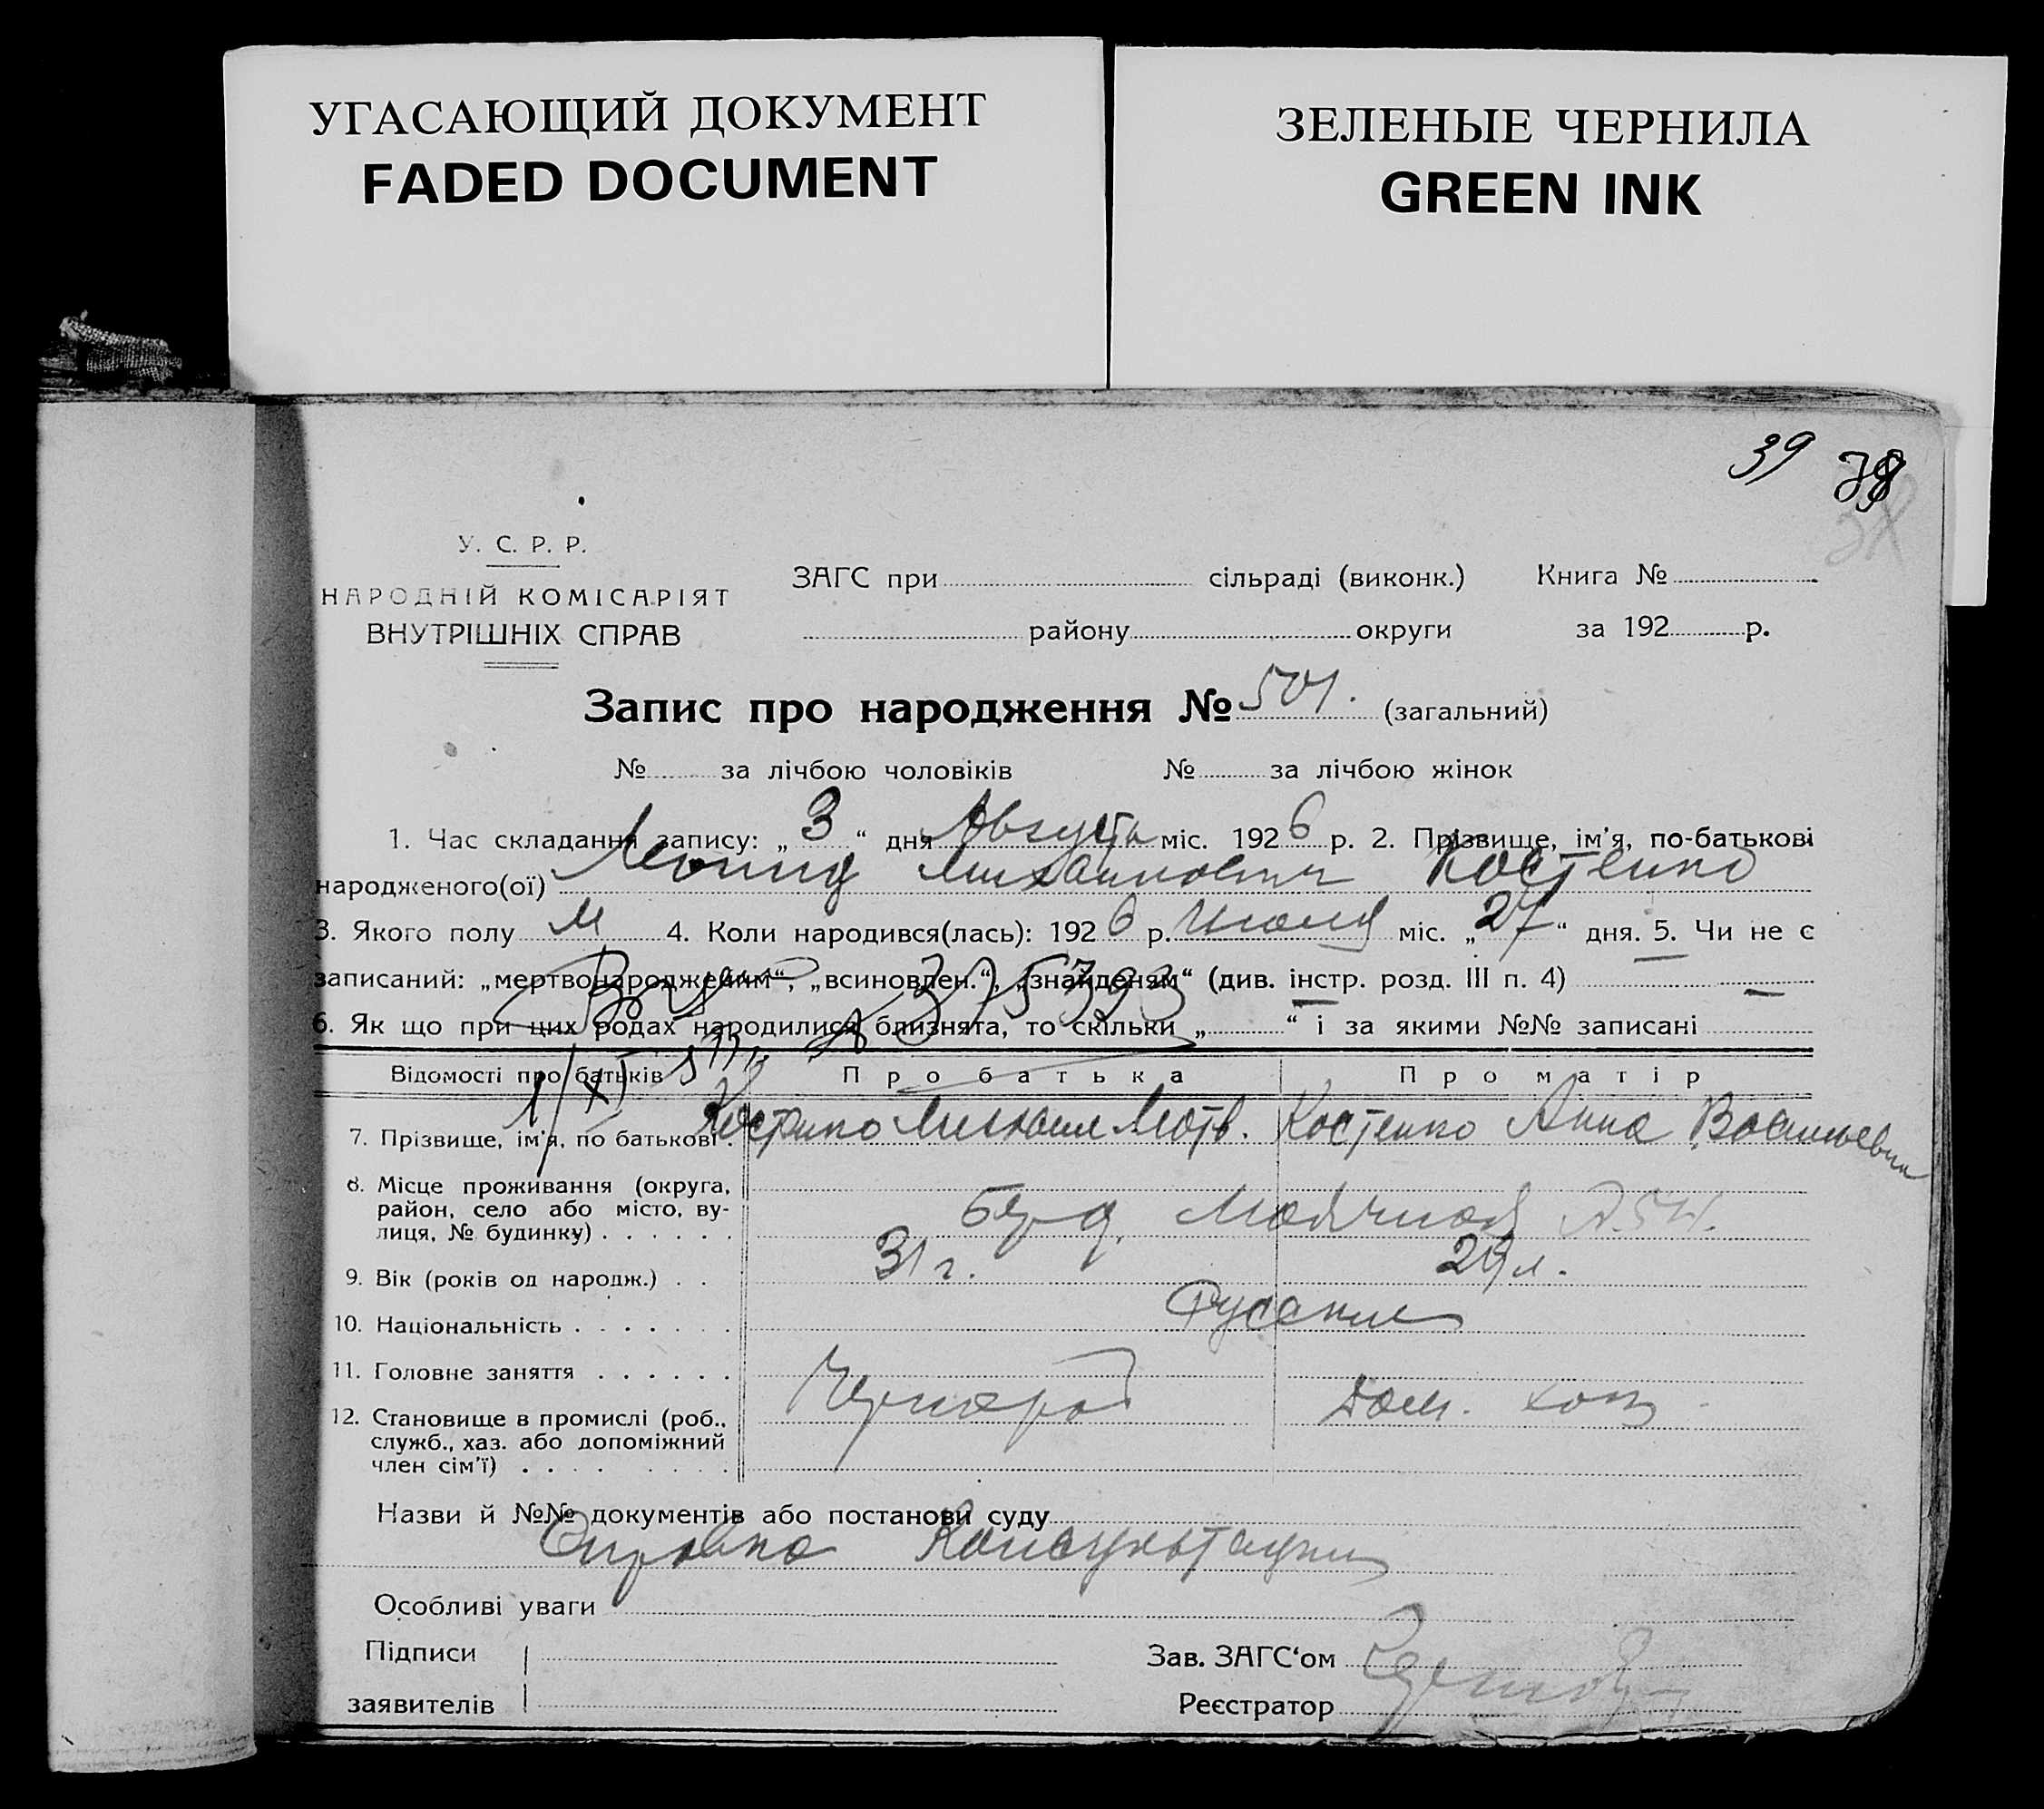 УГАСАЮЩИЙ ДОКУМЕНТ
FADED DOCUMENT
ЗЕЛЕНЫЕ ЧЕРНИЛА
GREEN INK
39 38
У. С. Р. Р.
НАРОДНІЙ КОМІСАРІЯТ
ВНУТРІШНІХ СПРАВ
ЗАГС при сільраді (виконк.) Книга №
району округи за 192 р.
Запис про народження № 501. (загальний)
№ за лічбою чоловіків № за лічбою жінок
1. Час складання запису: „ 3 “ дня Августа міс. 192 6 р. 2. Прізвище, ім'я, по-батькові
народженого(ої) Леонид Михайлович Костенко
3. Якого полу м 4. Коли народився(лась): 192 6 р. Июля міс. „ 27 “ дня. 5. Чи не є
записаний: „мертвонародженим“, „всиновлен.“, „знайденям“ (див. інстр. розд. III п. 4) —
6. Як що при цих родах народилися близнята, то скільки „ “ і за якими №№ записані
Відомості про батьків Про батька Про матір
7. Прізвище, ім'я, по батькові . Костенко Михаил Матв. Костенко Анна Васильевна
8. Місце проживання (округа,
район, село або місто, ву-
лиця, № будинку) . . . . . . Маячная
9. Вік (років од народж.) . . 31 г. 29 л.
10. Національність . . . . . . . Русские
11. Головне заняття . . . . . . Чернораб Дом. хоз
12. Становище в промислі (роб.,
служб., хаз. або допоміжний
член сім'ї) . . . . . . . .
Назви й №№ документів або постанови суду
Справка Консультации
Особливі уваги
Підписи
заявителів
Зав. ЗАГС'ом
Реєстратор